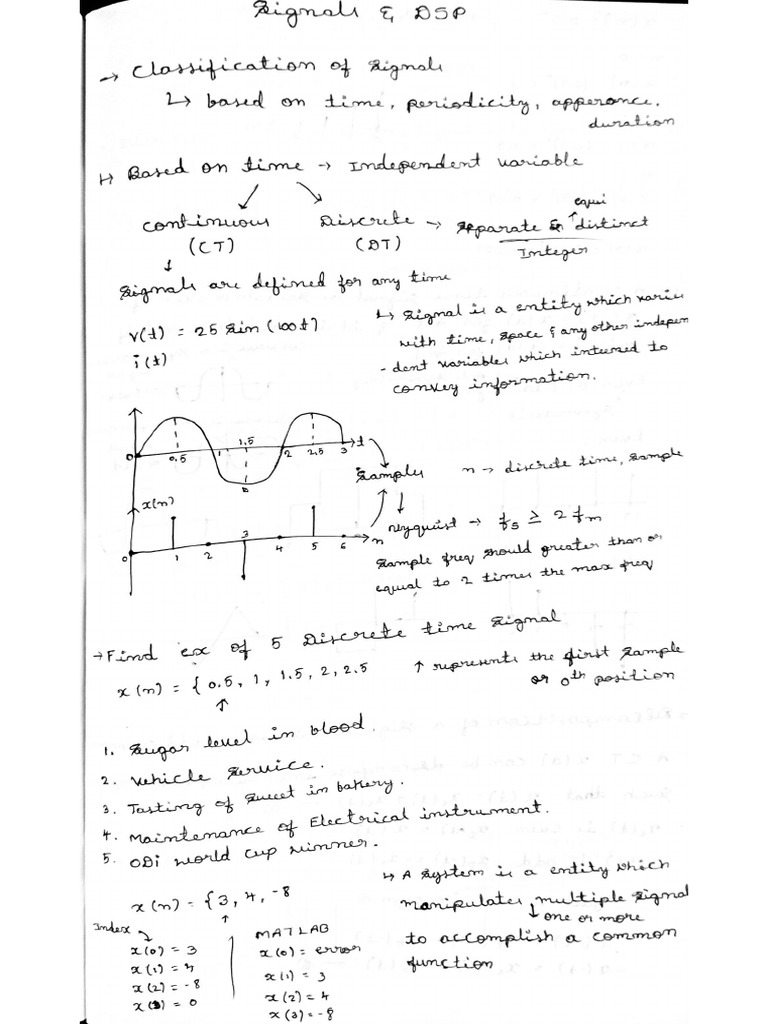 Signals & DSP
→ Classification of Signals
↳ based on time, periodicity, apperance, duration
↦ Based on time → Independent variable
continuous (CT)
Discrete (DT) → Separate & equi distinct
Integer
Signals are defined for any time
v(t) = 25 sin(100t)
i(t)
↳ Signal is a entity which varies
with time, space & any other indepen
-dent variables which intened to
convey information.
0 0.5 1 1.5 2 2.5 3 t
x(n)
0 1 2 3 4 5 6 n
Samples
n → discrete time, sample
Nyquist → fs ≥ 2fm
Sample freq should greater than or
equal to 2 times the max freq
→ Find ex of 5 Discrete time Signal
x(n) = { 0.5, 1, 1.5, 2, 2.5
↑
↑ represents the first sample
or 0th position
1. Sugar level in blood.
2. Vehicle Service.
3. Tasting of Sweet in bakery.
4. Maintenance of Electrical instrument.
5. ODi World Cup Winner.
x(n) = {3, 4, -8
↑
Index
x(0) = 3
x(1) = 4
x(2) = -8
x(3) = 0
MATLAB
x(0) = error
x(1) = 3
x(2) = 4
x(3) = -8
↳ A system is a entity which
manipulates multiple signal
↓ one or more
to accomplish a common
function